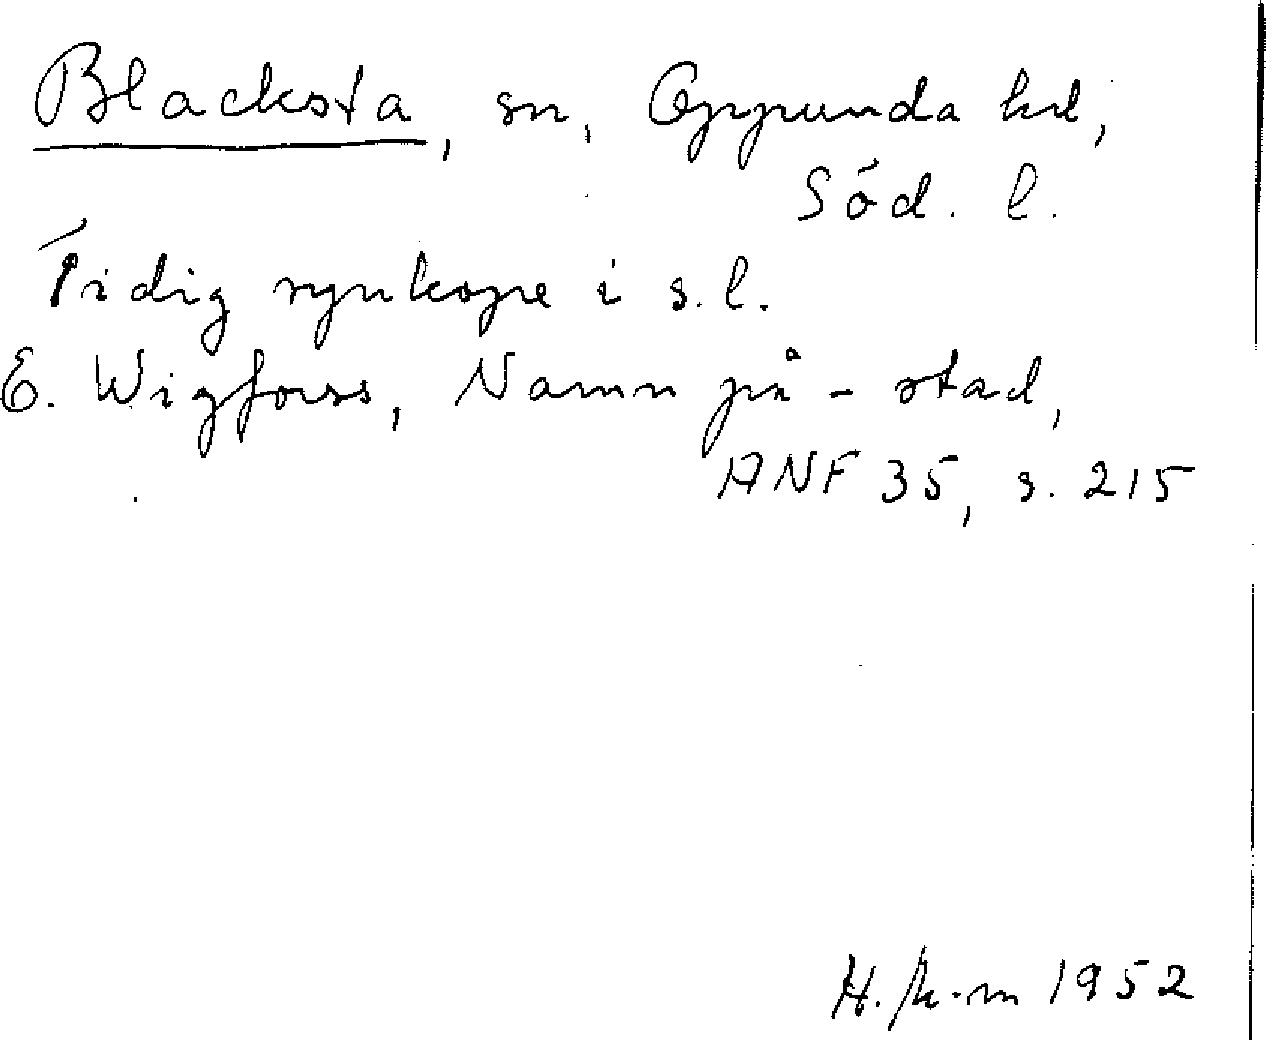 Blacksta, sn, Oppunda hd,
Söd. l.
Tidig synkope i s.l.
E. Wigforss, Namn på -stad,
ANF 35, s. 215
1952